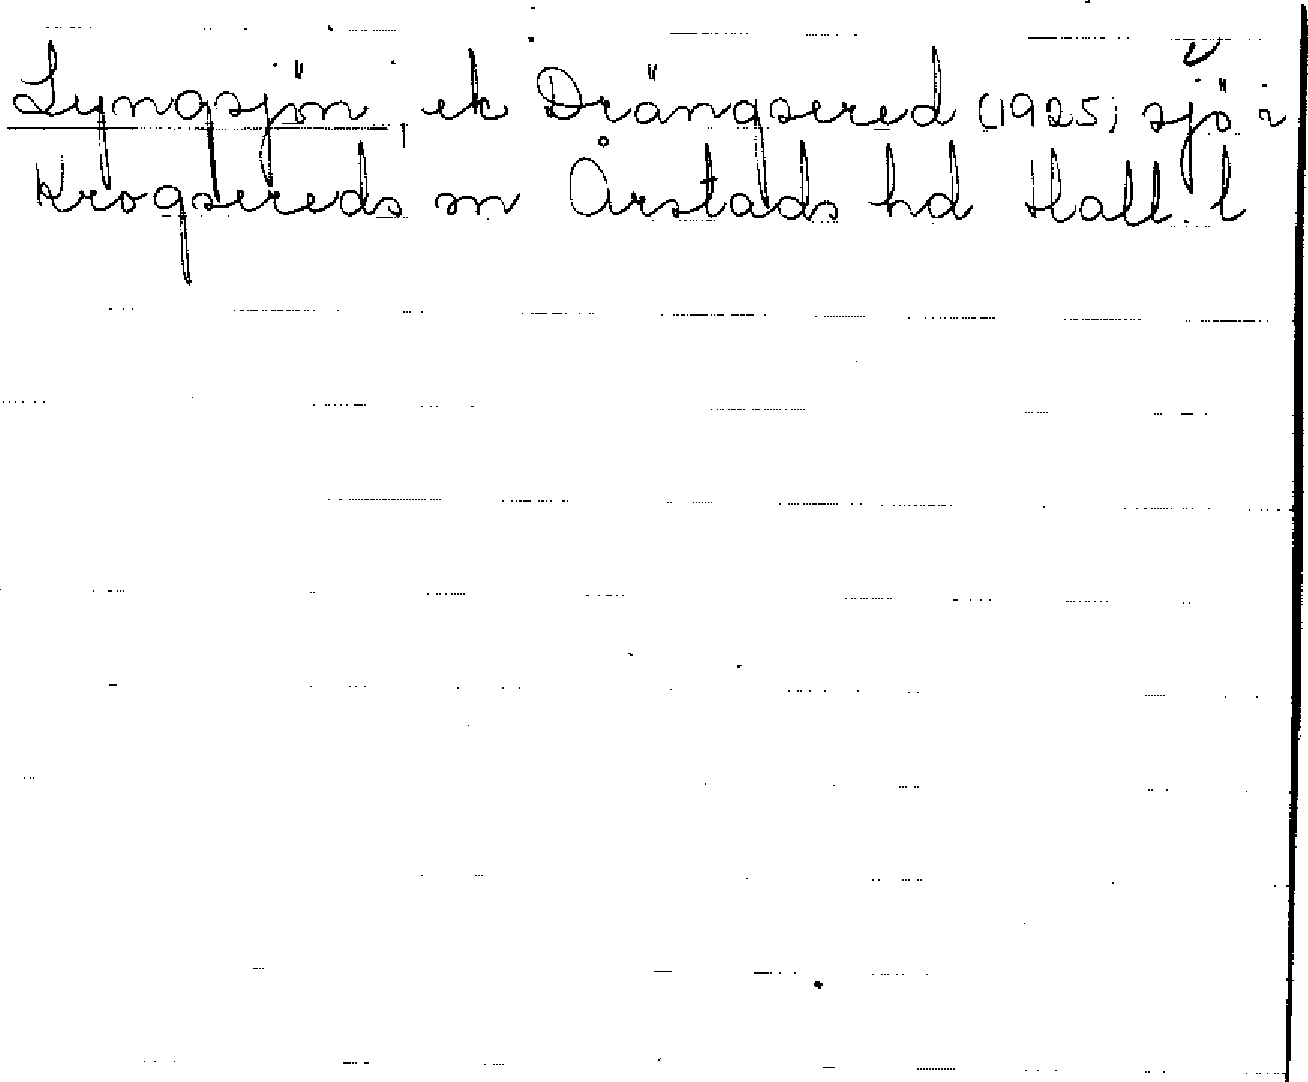 Lyngsjön, ek Drängsered (1925; sjö i
Krogsereds sn Årstads hd Hall. l